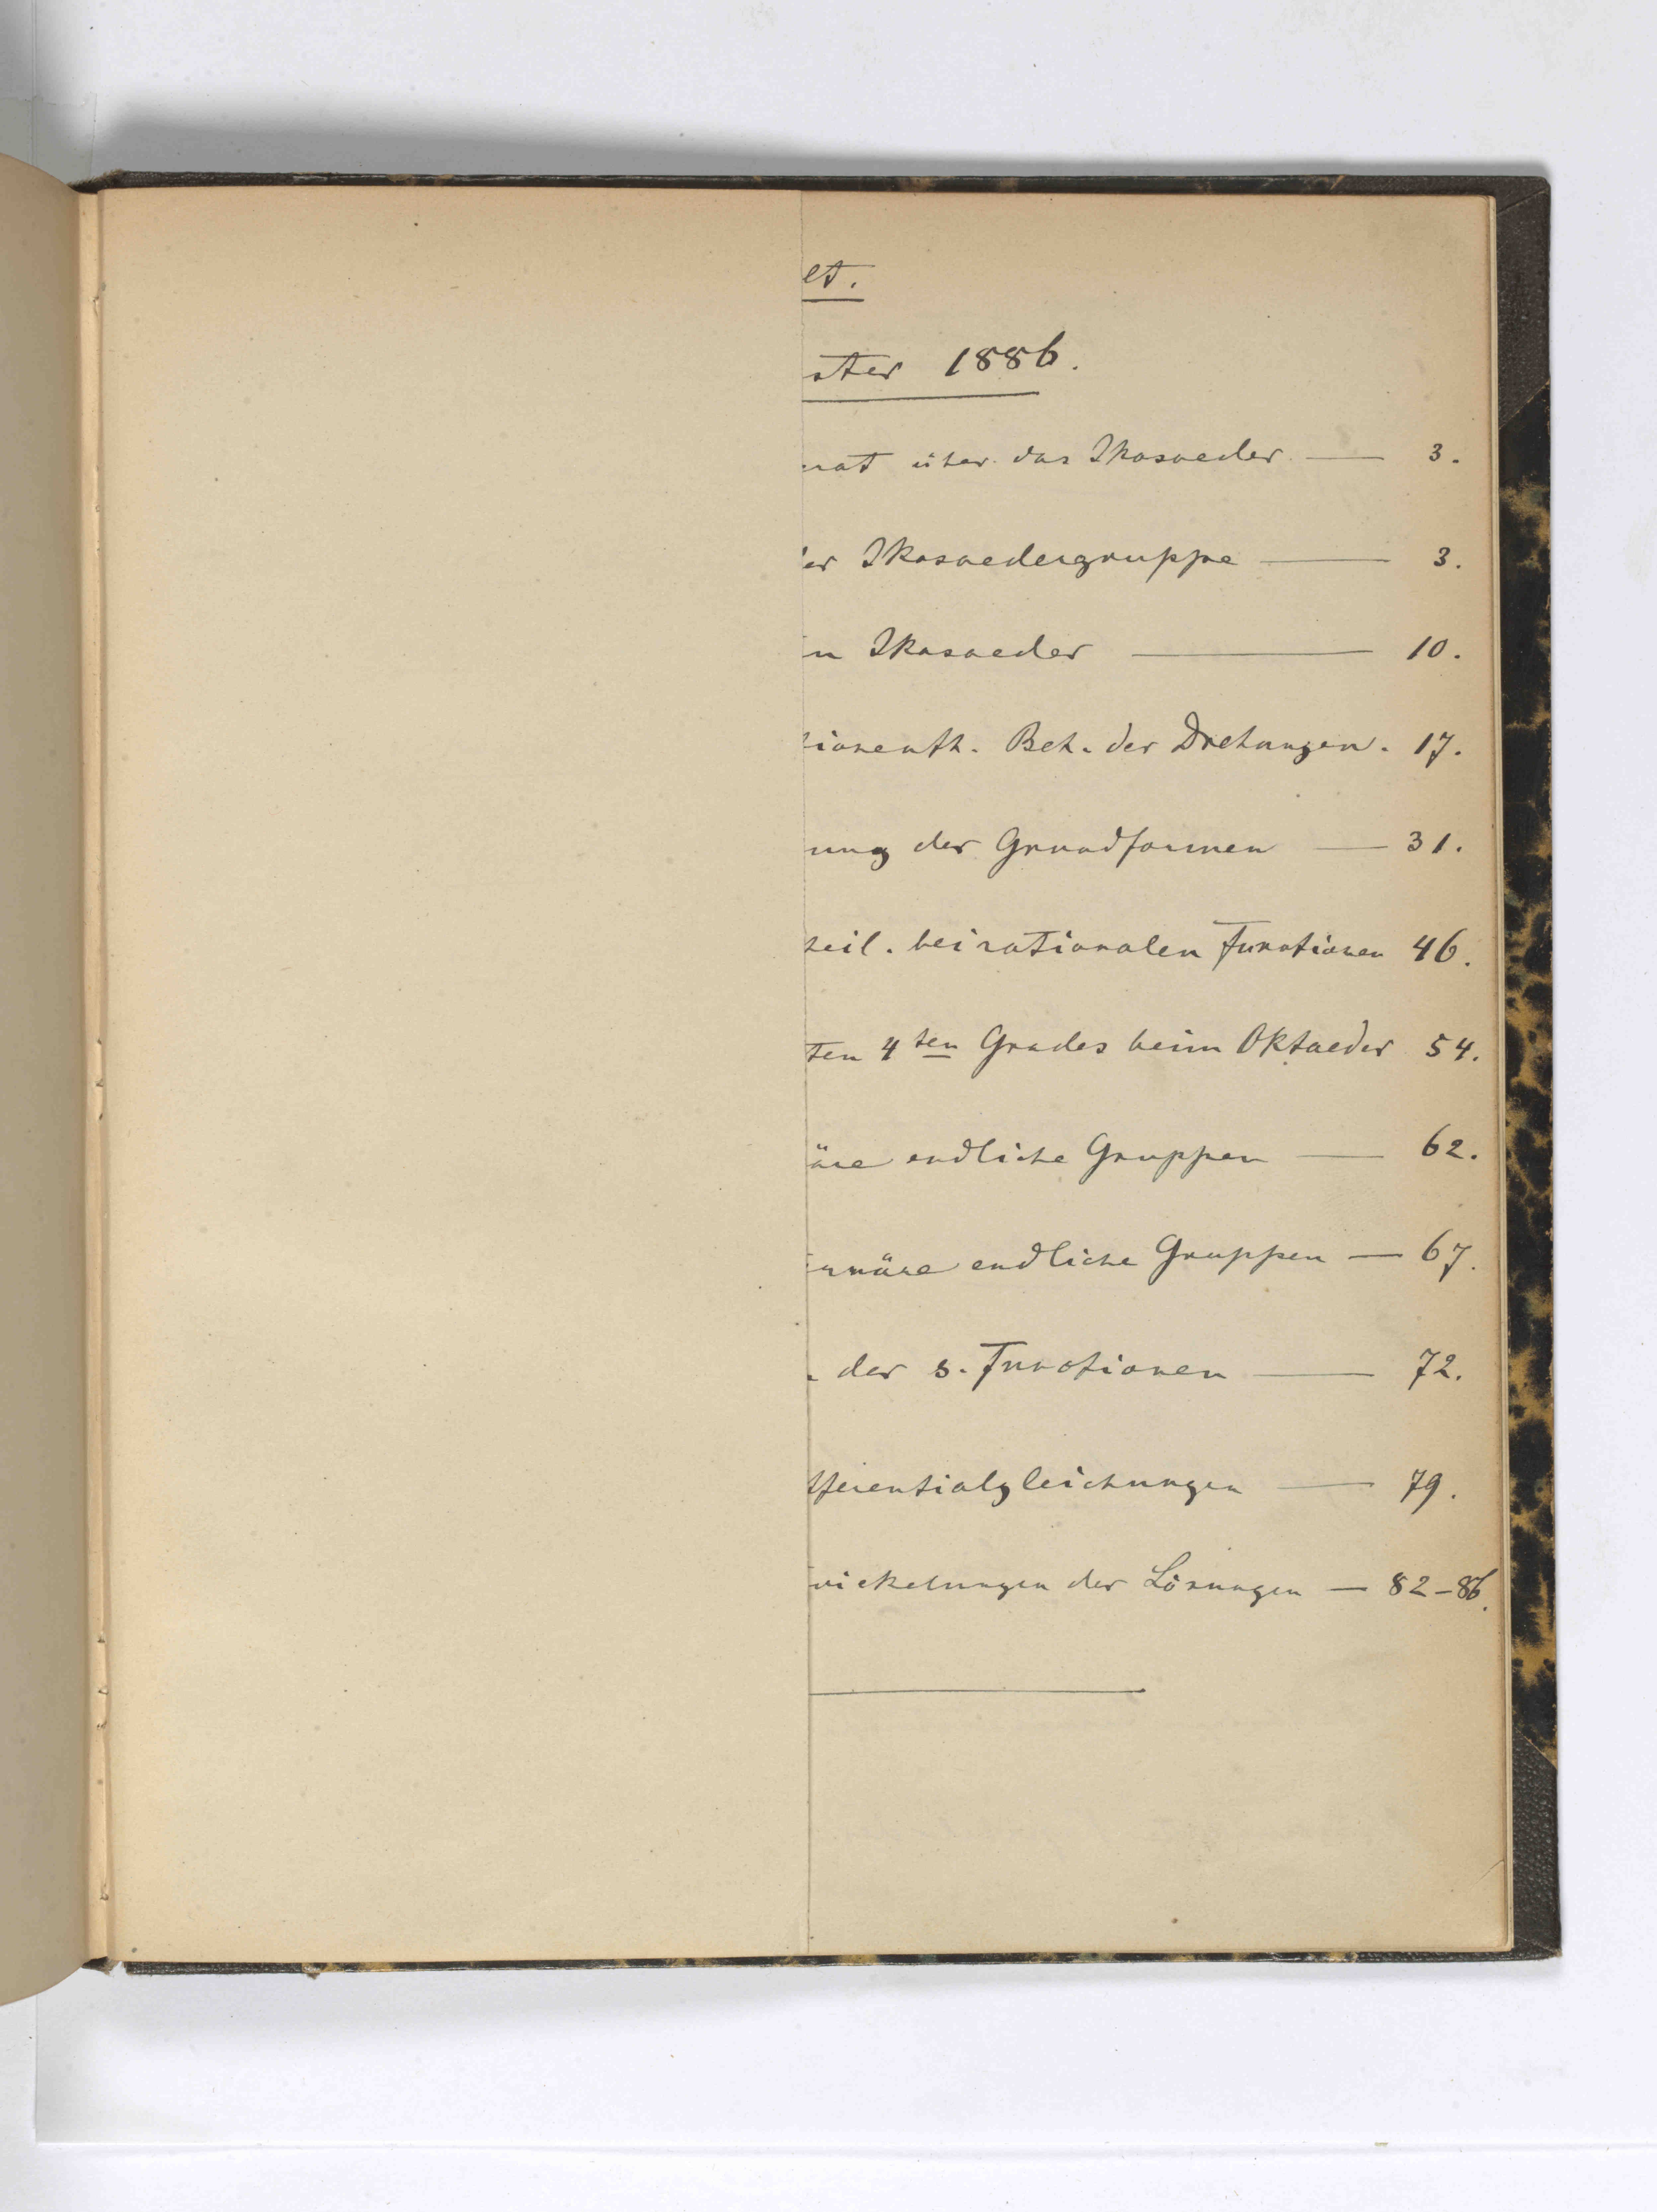 et.
ster 1886.
rat über das Ikosaeder — 3.
er Ikosaedergruppe — 3.
n Ikosaeder — 10.
tionenth. Beh. der Drehungen. 17.
ung der Grundformen — 31.
heil. bei rationalen Functionen 46.
ten 4ten Grades beim Oktaeder 54.
äre endliche Gruppen — 62.
rnäre endliche Gruppen — 67.
der s. Functionen — 72.
fferentialgleichungen — 79.
wickelungen der Lösungen — 82-86.